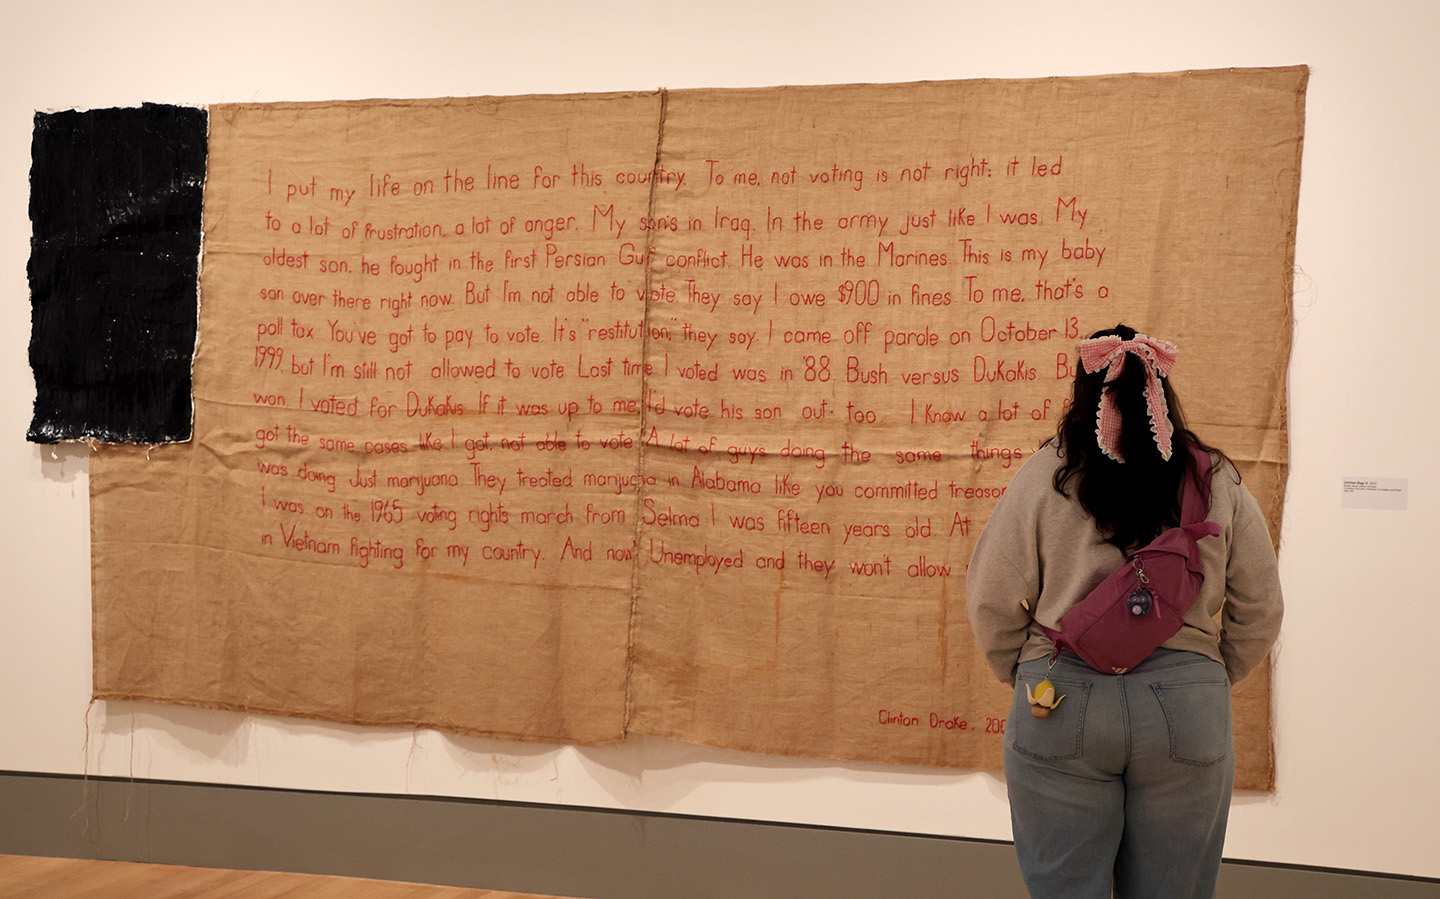 I put my life on the line for this country. To me, not voting is not right; it led
to a lot of frustration, a lot of anger. My son's in Iraq. In the army just like I was. My
oldest son, he fought in the first Persian Gulf conflict. He was in the Marines. This is my baby
son over there right now. But I'm not able to vote. They say I owe $900 in fines. To me, that's a
poll tax. You've got to pay to vote. It's "restitution," they say. I came off parole on October 13,
1999, but I'm still not allowed to vote. Last time I voted was in '88. Bush versus Dukakis.
won. I voted for Dukakis. If it was up to me, I'd vote his son out too. I know a lot of
got the same cases like I got, not able to vote. A lot of guys doing the same things
was doing. Just marijuana. They treated marijuana in Alabama like you committed treason
I was on the 1965 voting rights march from Selma. I was fifteen years old. At
in Vietnam fighting for my country. And now? Unemployed and they won't allow
Clinton Drake,